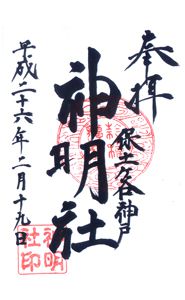 奉拝
保土ケ谷神戸
神明社
平成二十六年二月十九日
神明
社印